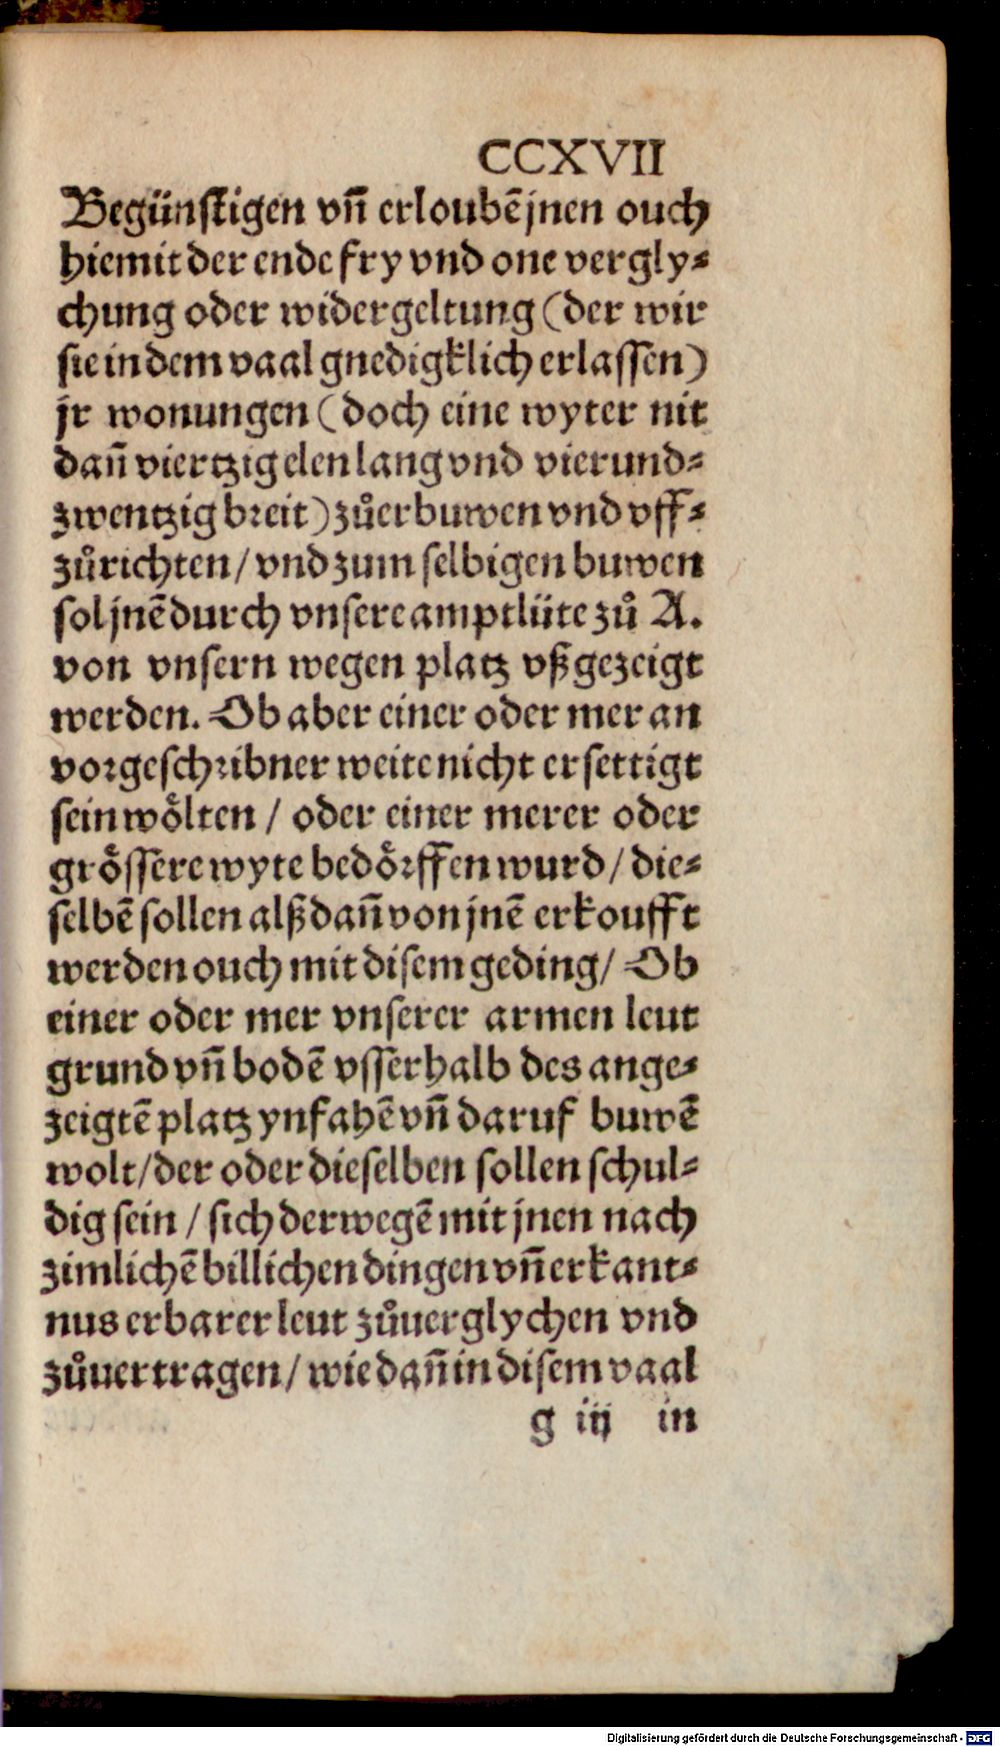 CCXVII
Begünstigen vn̄ erloubē jnen ouch
hiemit der ende fry vnd one vergly⸗
chung oder widergeltung (der wir
sie in dem vaal gnedigklich erlassen)
jr wonungen (doch eine wyter nit
dan̄ viertzig elen lang vnd vierund⸗
zwentzig breit) zůerbuwen vnd vff⸗
zůrichten / vnd zum selbigen buwen
sol jnē durch vnsere amptlüte zů A.
von vnsern wegen platz vßgezeigt
werden. Ob aber einer oder mer an
vorgeschribner weite nicht ersettigt
sein wo̊lten / oder einer merer oder
gro̊ssere wyte bedo̊rffen wurd / die⸗
selbē sollen alßdan̄ von jnē erkoufft
werden ouch mit disem geding / Ob
einer oder mer vnserer armen leut
grund vn̄ bodē vsserhalb des ange⸗
zeigtē platz ynfahē vn̄ daruf buwē
wolt / der oder dieselben sollen schul⸗
dig sein / sich derwegē mit jnen nach
zimlichē billichen dingen vn̄ erkant⸗
nus erbarer leut zůuerglychen vnd
zůuertragen / wie dan̄ in disem vaal
g iij in
Digitalisierung gefördert durch die Deutsche Forschungsgemeinschaft - DFG